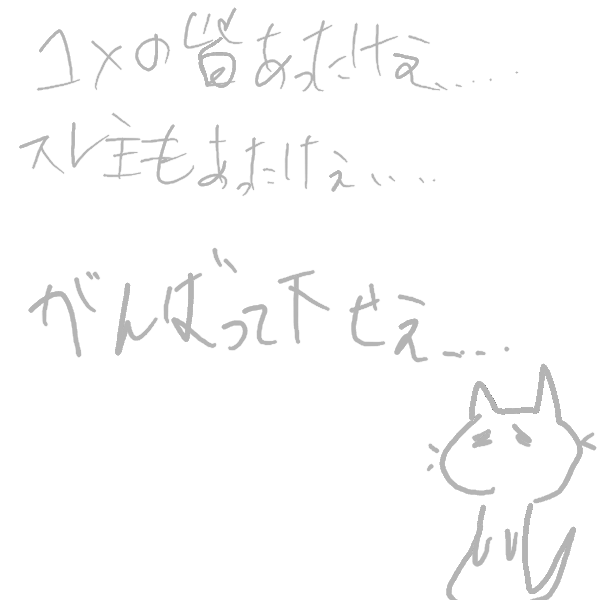 コメの皆あったけぇ、、、、、
スレ主もあったけぇ、、、、
がんばって下せぇ、、、、